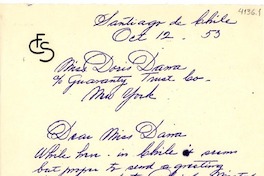 4136.1
Santiago de Chile
Oct 12. 53
CFS
Miss Doris Dana
% Guaranty Trust Co.
New York
Dear Miss Dana
While here in Chile it seems
but proper to send a greeting